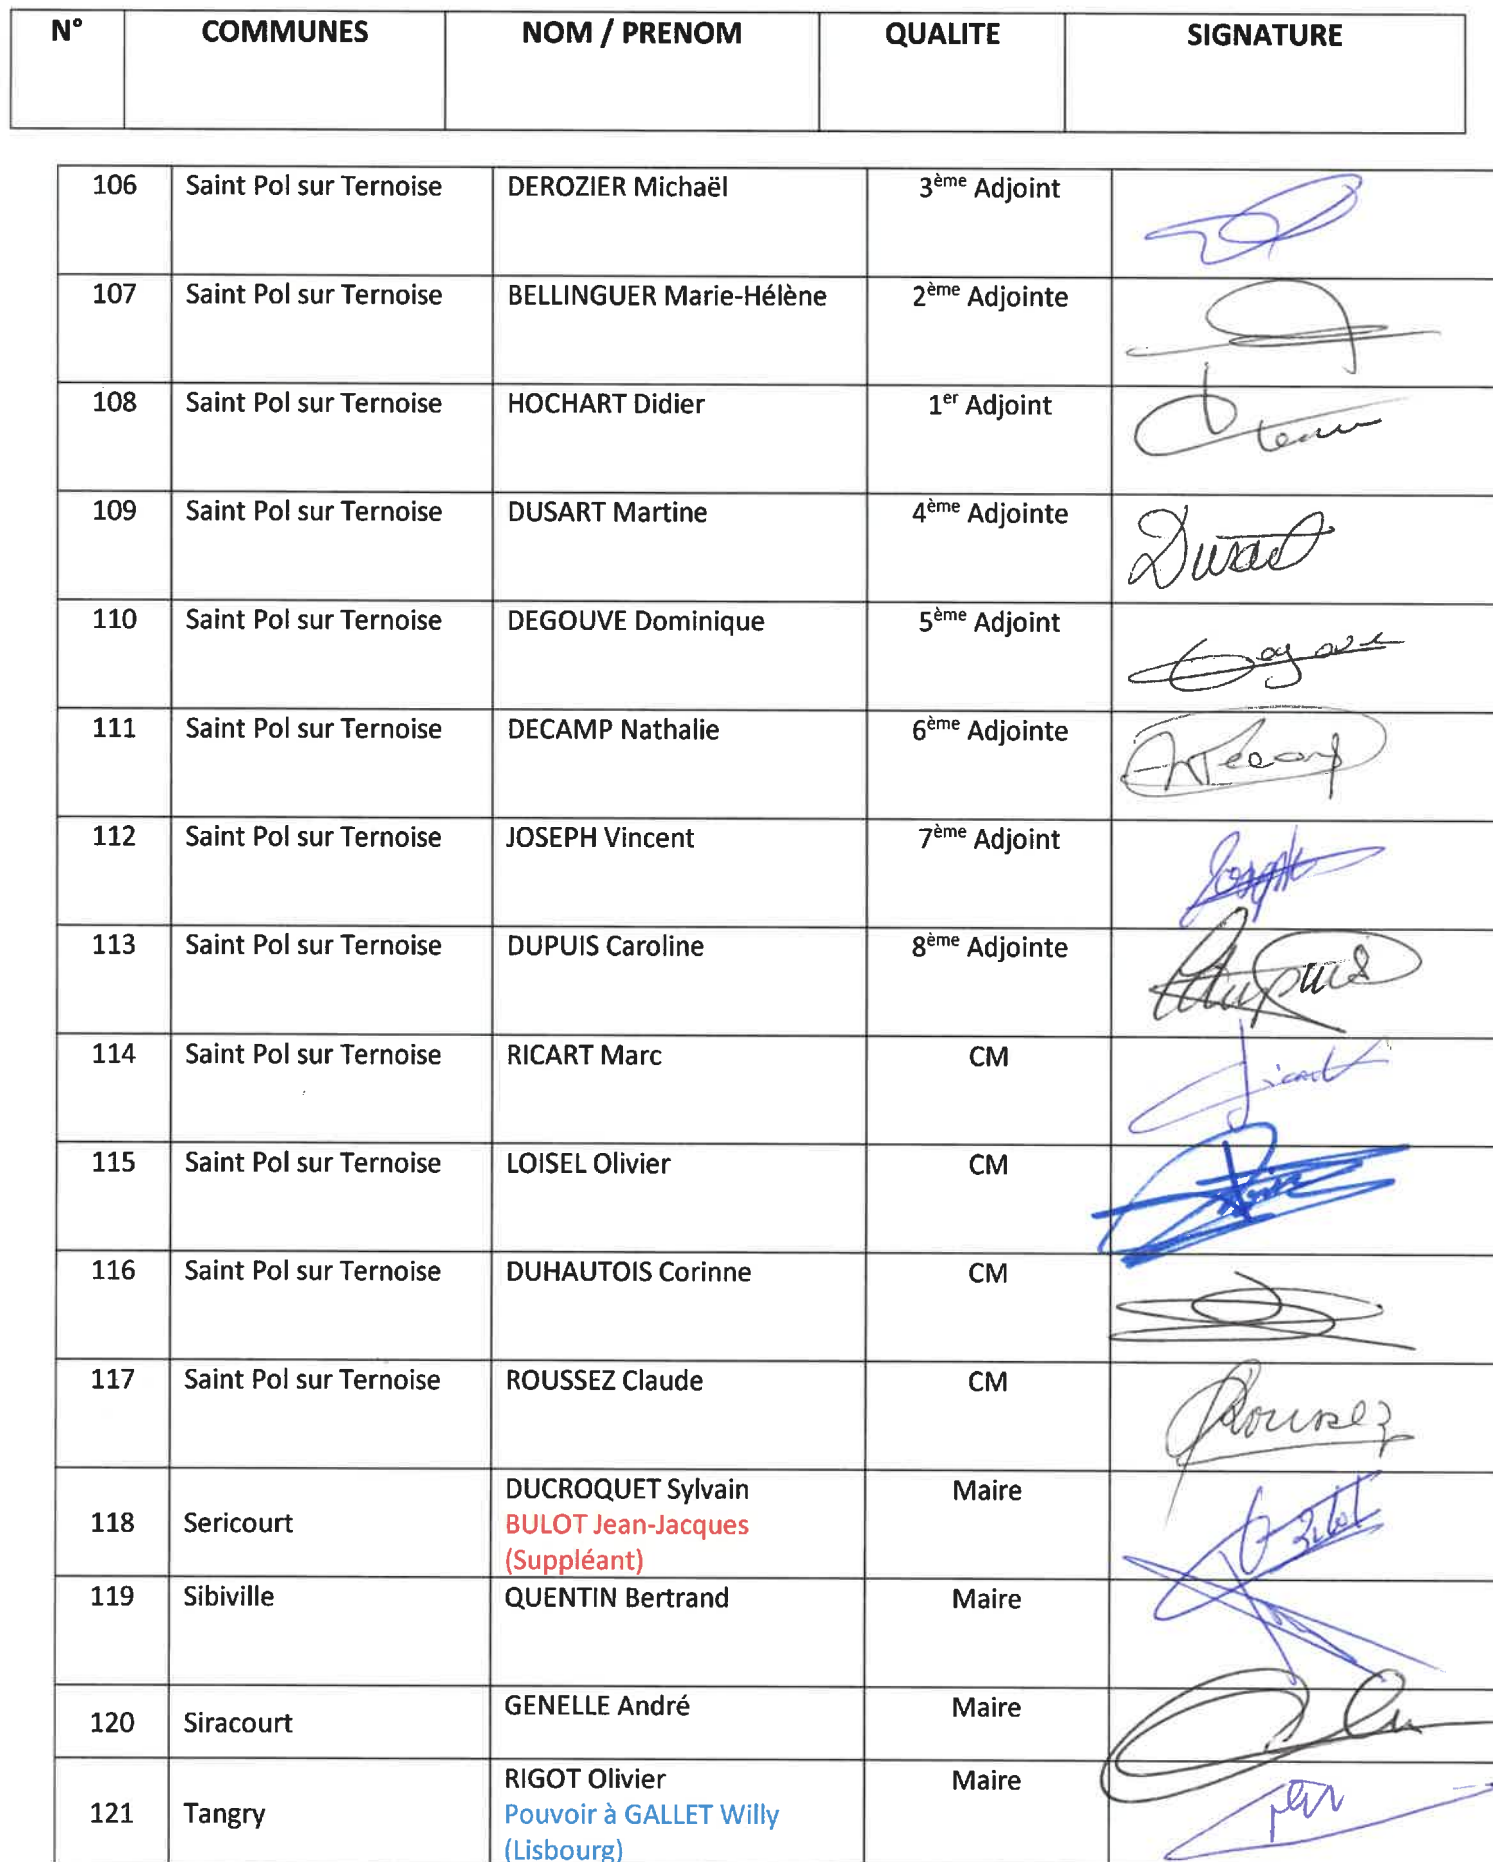 N° COMMUNES NOM / PRENOM QUALITE SIGNATURE
106 Saint Pol sur Ternoise DEROZIER Michaël 3ème Adjoint
107 Saint Pol sur Ternoise BELLINGUER Marie-Hélène 2ème Adjointe
108 Saint Pol sur Ternoise HOCHART Didier 1er Adjoint
109 Saint Pol sur Ternoise DUSART Martine 4ème Adjointe Dusart
110 Saint Pol sur Ternoise DEGOUVE Dominique 5ème Adjoint
111 Saint Pol sur Ternoise DECAMP Nathalie 6ème Adjointe
112 Saint Pol sur Ternoise JOSEPH Vincent 7ème Adjoint Joseph
113 Saint Pol sur Ternoise DUPUIS Caroline 8ème Adjointe Dupuis
114 Saint Pol sur Ternoise RICART Marc CM Ricart
115 Saint Pol sur Ternoise LOISEL Olivier CM
116 Saint Pol sur Ternoise DUHAUTOIS Corinne CM
117 Saint Pol sur Ternoise ROUSSEZ Claude CM Roussez
DUCROQUET Sylvain Maire
118 Sericourt BULOT Jean-Jacques Bulot
(Suppléant)
119 Sibiville QUENTIN Bertrand Maire
GENELLE André Maire
120 Siracourt
RIGOT Olivier Maire
121 Tangry Pouvoir à GALLET Willy
(Lisbourg)